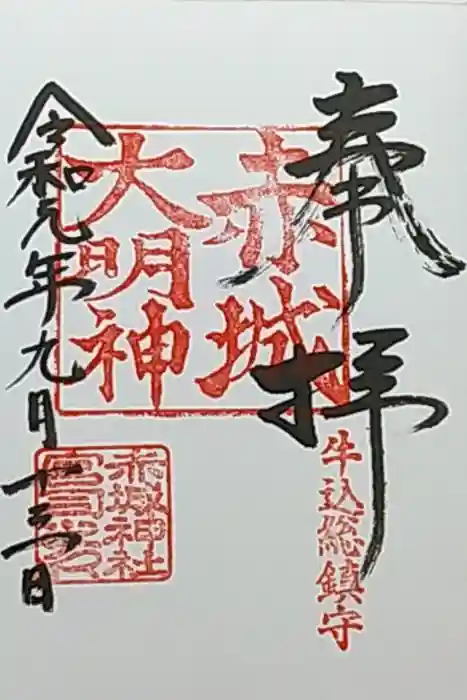 奉拝
牛込総鎮守
赤城
大明神
赤城神社
宮司之印
令和元年九月十三日